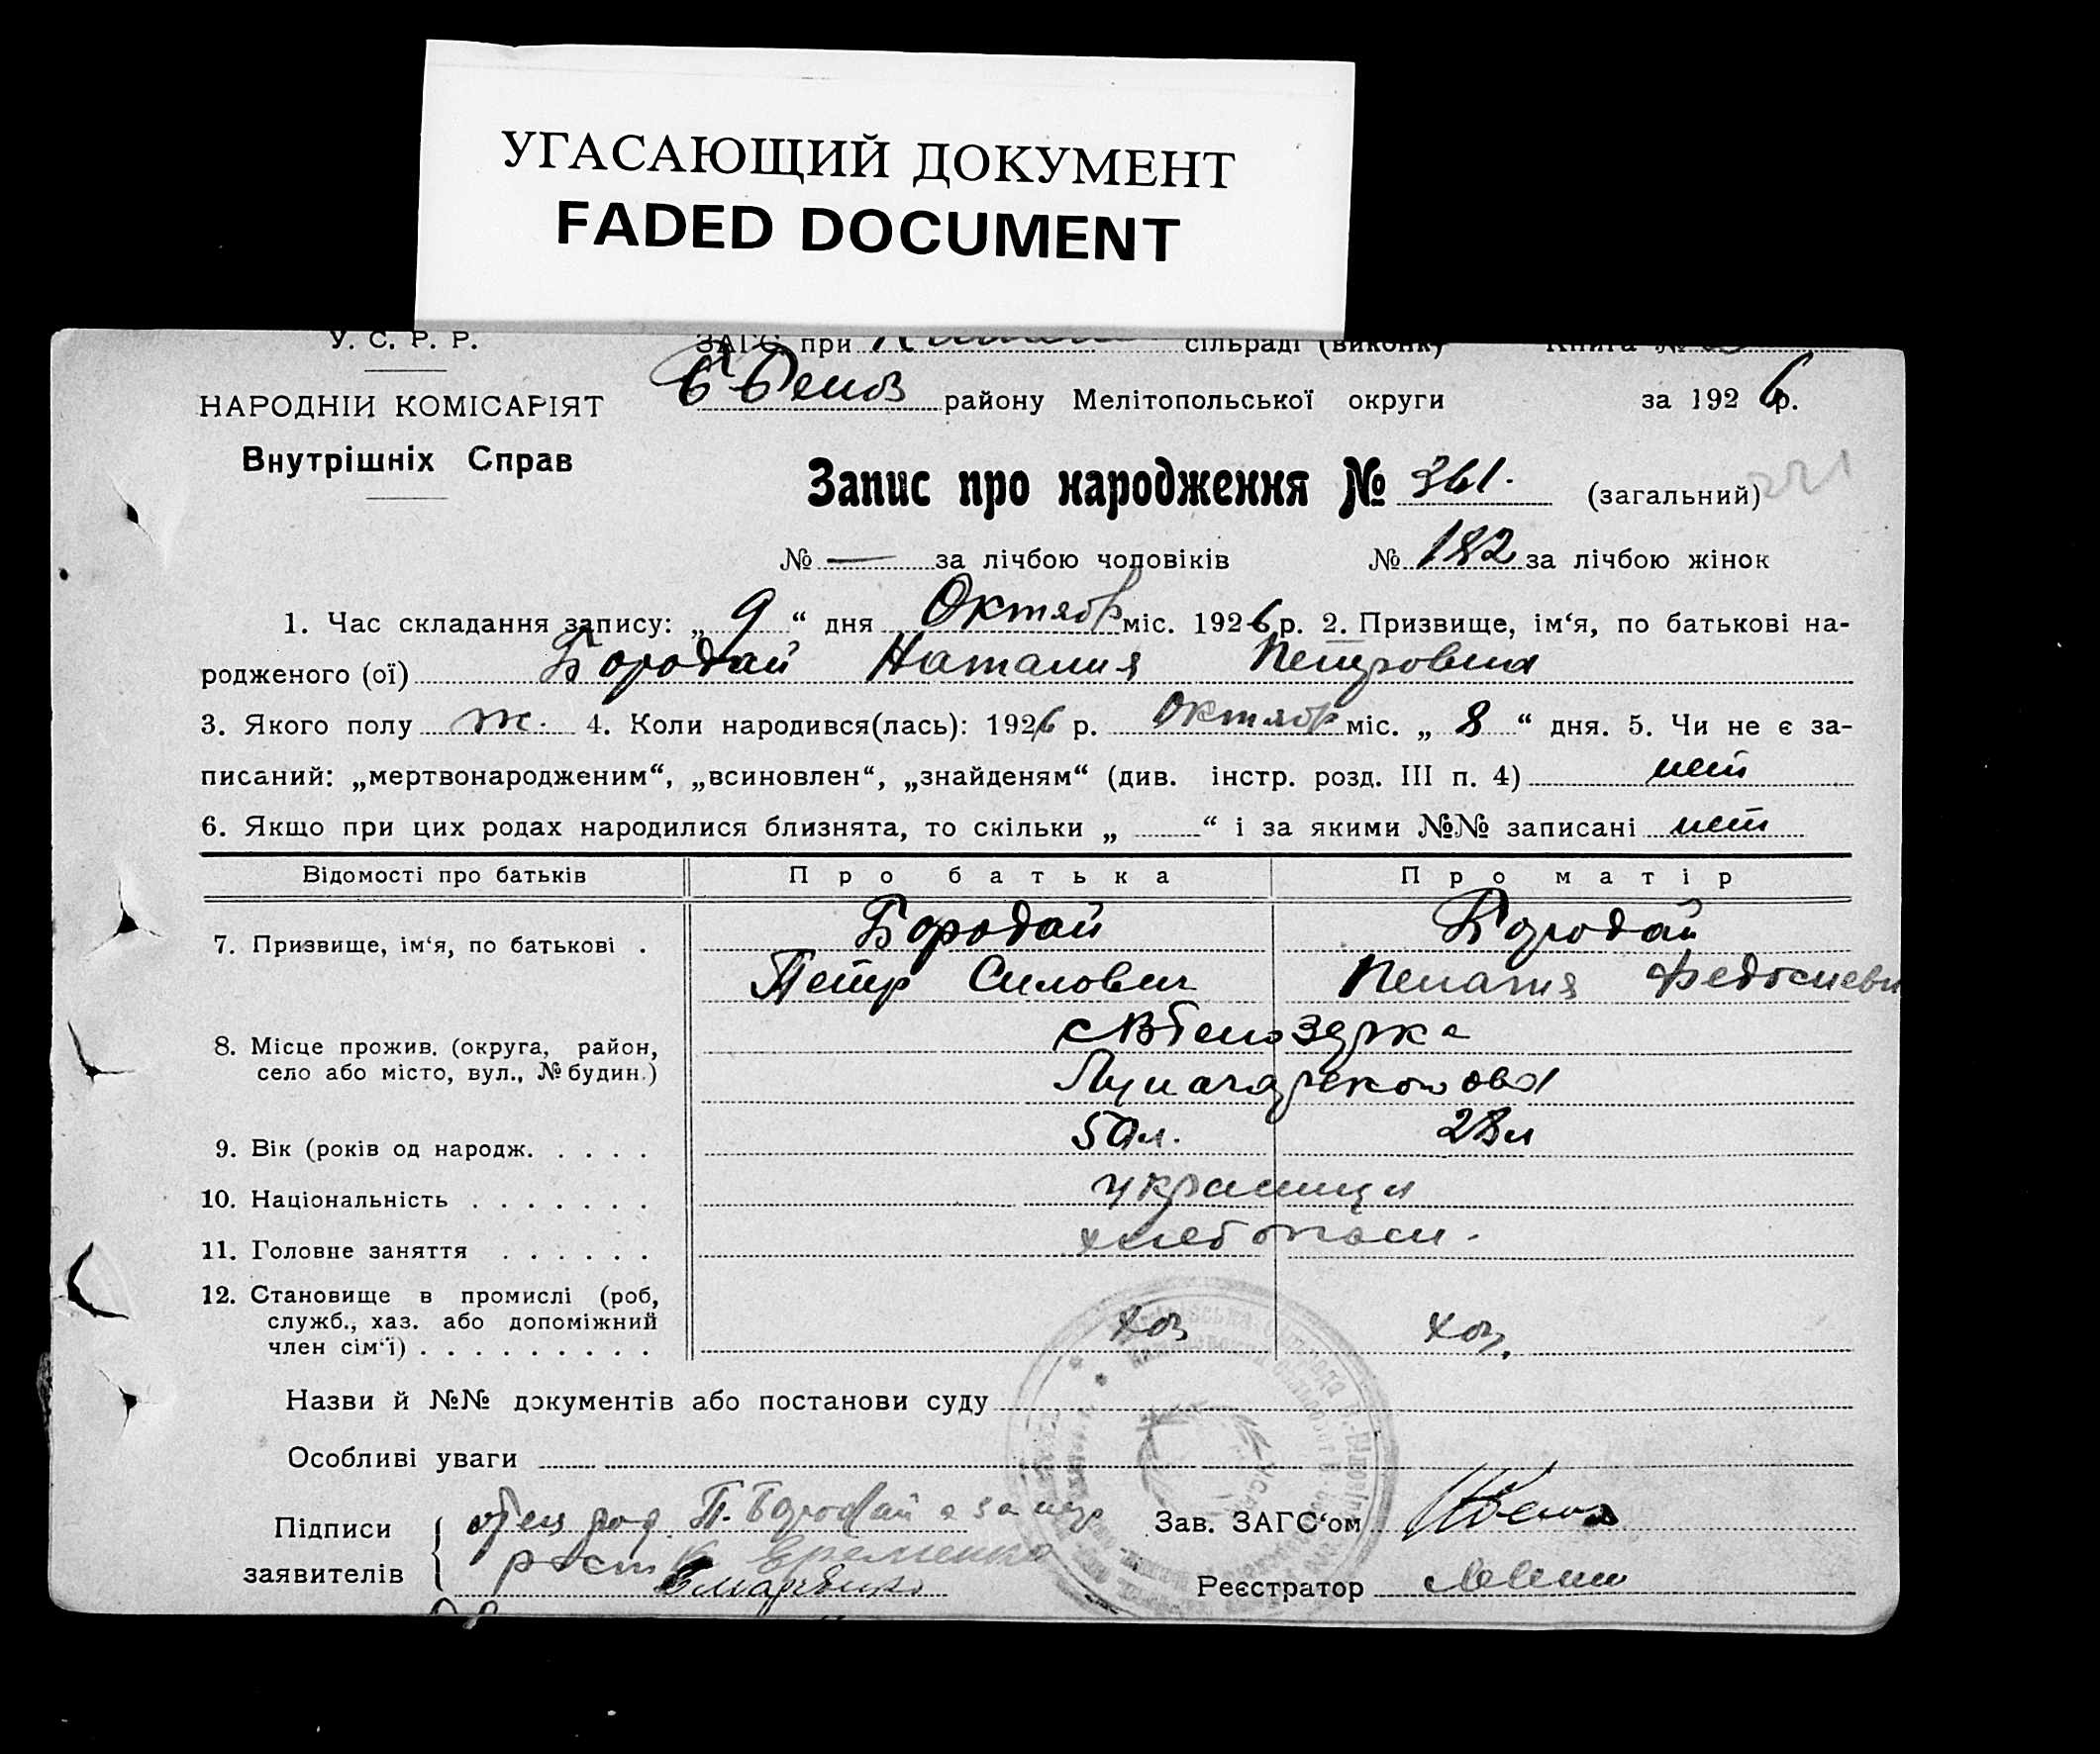 УГАСАЮЩИЙ ДОКУМЕНТ
FADED DOCUMENT
У. С. Р. Р.
ЗАГС при сільраді (виконк) Книга №
НАРОДНІЙ КОМІСАРІЯТ
Б Белоз району Мелітопольської округи за 1926 р.
Внутрішніх Справ
Запис про народження № 361. (загальний) 221
№ — за лічбою чоловіків № 182 за лічбою жінок
1. Час складання запису: „ 9 “ дня Октябр міс. 1926 р. 2. Призвище, ім‘я, по батькові на-
родженого (ої) Бородай Наталия Петровна
3. Якого полу ж. 4. Коли народився(лась): 1926 р. Октябр міс. „ 8 “ дня. 5. Чи не є за-
писаний: „мертвонародженим“, „всиновлен“, „знайденям“ (див. інстр. розд. III п. 4) нет
6. Якщо при цих родах народилися близнята, то скільки „ “ і за якими №№ записані нет
Відомості про батьків Про батька Про матір
7. Призвище, ім‘я, по батькові . Бородай Бородай
Петр Силович Пелагия Федосиевн
8. Місце прожив. (округа, район, село або місто, вул., № будин.) Белозерка
9. Вік (років од народж. . . . . 50л. 28л
10. Національність . . . . . . . украинцы
11. Головне заняття . . . . . . хлебопаш.
12. Становище в промислі (роб, служб., хаз. або допоміжний член сім‘ї) . . . . . . . . . хоз хоз.
Назви й №№ документів або постанови суду
Особливі уваги
Підписи заявителів П. Бородай а за
Еременко
Зав. ЗАГС‘ом
Реєстратор